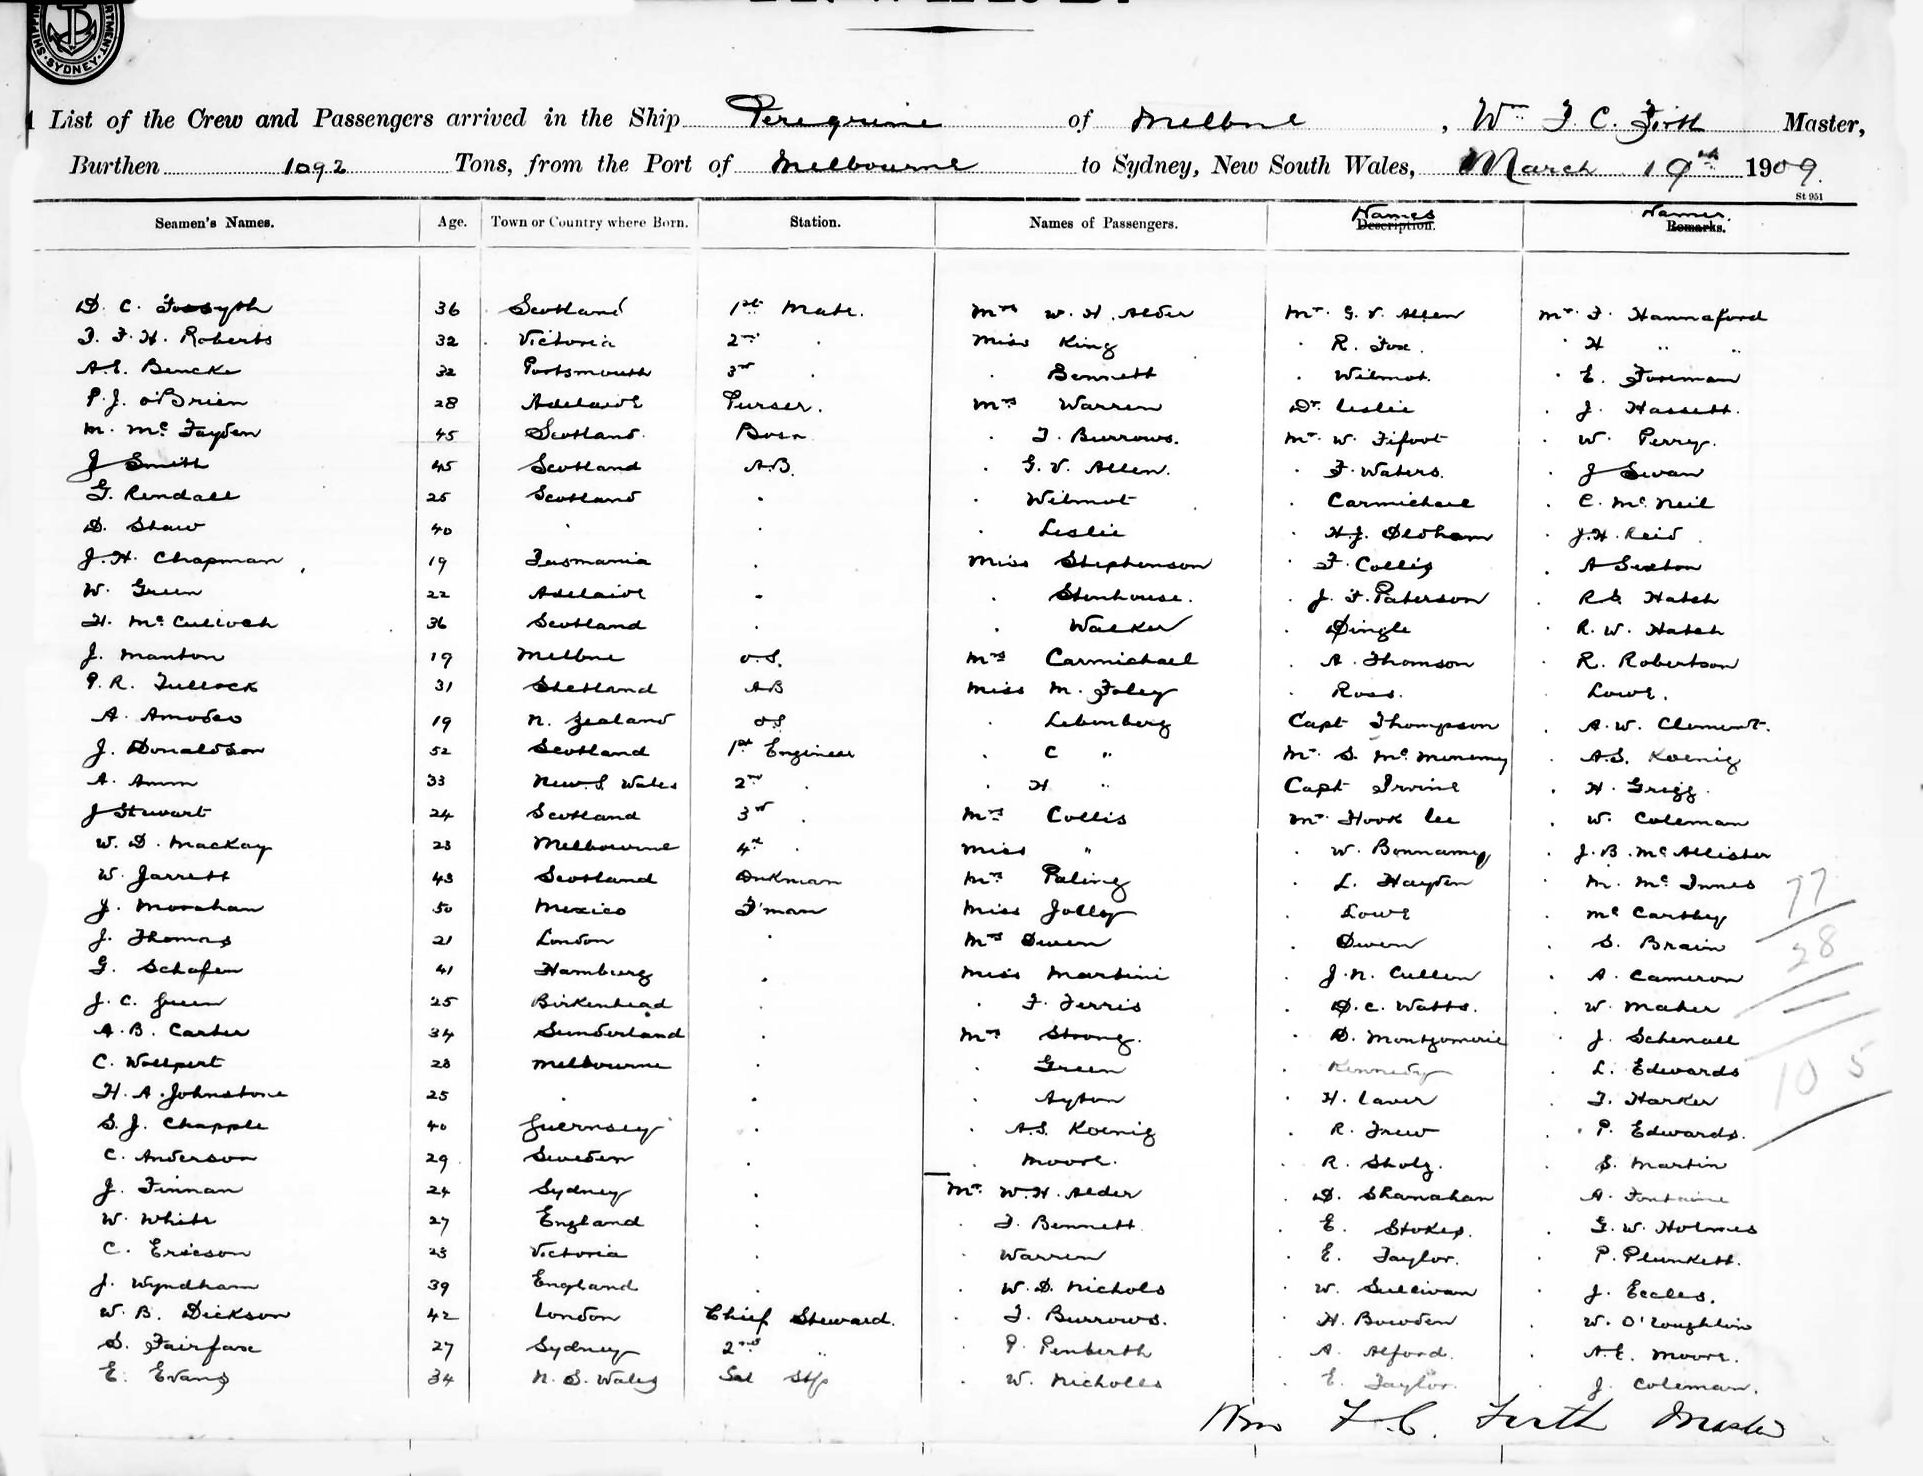 SHIPPING DEPARTMENT. SYDNEY
List of the Crew and Passengers arrived in the Ship Peregrine of Melbne, Wm F. C. Firth Master,
Burthen 1092 Tons, from the Port of Melbourne to Sydney, New South Wales, March 19th 1909.
St 951
Seamen's Names. Age. Town or Country where Born. Station. Names of Passengers. Names Description. Names. Remarks.
D. C. Forsyth 36 Scotland 1st Mate. Mrs W. H. Alder Mr G. V. Allen Mr F. Hannaford
F. F. H. Roberts 32 Victoria 2nd . Miss King . R. Fox. . H " "
A. E. Bencke 32 Portsmouth 3rd . . Bennett . Wilmot. . E. Foreman
P. J. O'Brien 28 Adelaide Purser. Mrs Warren Dr. Leslie . J. Hassett.
M. McFayden 45 Scotland. Bosn . F. Burrows. Mr W. Fifoot . W. Perry.
J Smith 45 Scotland A.B. . G. V. Allen. . F. Waters. . J Swan
G. Rendall 25 Scotland . . Wilmot . Carmichael . C. McNeil
D. Shaw 40 . . . Leslie . H. J. Oldham . J. H. Reid
J. H. Chapman 19 Tasmania . Miss Stephenson . F. Collis . A Sexton
W. Green 22 Adelaide . . Stenhouse. . J. F. Paterson . R S. Hatch
H. McCulloch 36 Scotland . . Walker . Dingle . R. W. Hatch
J. Manton 19 Melbne O.S. Mrs Carmichael . A. Thomson . R. Robertson
P. R. Tullock 31 Shetland AB Miss M. Foley . Ross. . Lowe.
A. Amodeo 19 N. Zealand OS . Lebenberg Capt Thompson . A. W. Clement.
J. Donaldson 52 Scotland 1st Engineer . C " Mr S. McMenemy . A.S. Koenig
A. Amm 33 New. S. Wales 2nd . . H " Capt Irvine . H. Grigg.
J Stewart 24 Scotland 3rd . Mrs Collis Mr Hook Lee . W. Coleman
W. D. Mackay 23 Melbourne 4th . Miss " . W. Bonnamy . J. B. McAllister
W. Jarrett 43 Scotland Dnkman Mrs Paling . L. Hayden . M. McInnes 77
J. Morahan 50 Mexico F'man Miss Jolley . Lowe . McCarthy
J. Thomas 21 London . Mrs Owen . Owen . S. Brain 28
G. Schafen 41 Hamburg . Miss Martini . J. N. Cullen . A. Cameron
J. C. Green 25 Birkenhead . . F. Ferris . D. C. Watts. . W. Maher
A. B. Carter 34 Sunderland . Mrs Strong. . D. Montgomerie . J. Schenall
C. Wollpert 23 Melbourne . . Green . Kennedy . L. Edwards 105
H. A. Johnstone 25 . . . Ayton . H. Laver . F. Harker
S. J. Chapple 40 Guernsey . . A.S. Koenig . R. Frew . P. Edwards.
C. Anderson 29 Sweden . . Moore. . R. Sholz. . S. Martin
J. Finnan 24 Sydney . Mr. W. H. Alder . D. Shanahan . A. Fontaine
W. White 27 England . . F. Bennett . E. Stokes. . G. W. Holmes
C. Ericson 23 Victoria . . Warren . E. Taylor. . P. Plunkett.
J. Wyndham 39 England . . W. D. Nichols . W. Sullivan . J. Eccles.
W. B. Dickson 42 London Chief Steward. . F. Burrows. . H. Bowden . W. O'Loughlin
S. Fairfax 27 Sydney 2nd " . P. Penberth . A. Alford. . A. E. Moore.
E. Evans 34 N. S. Wales Sal . W. Nicholls . E. Taylor. . J. Coleman.
Wm F. C. Firth Master